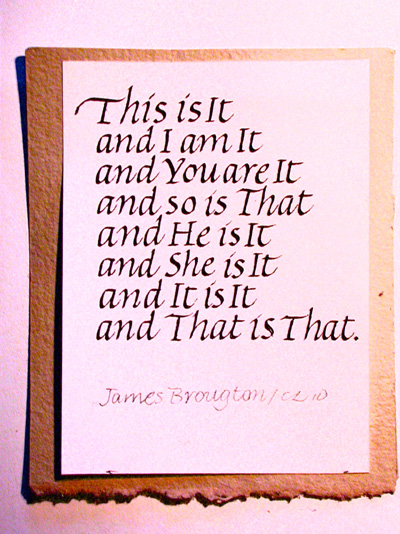 This is It
and I am It
and You are It
and so is That
and He is It
and She is It
and It is It
and That is That.
James Brougton / CL 10